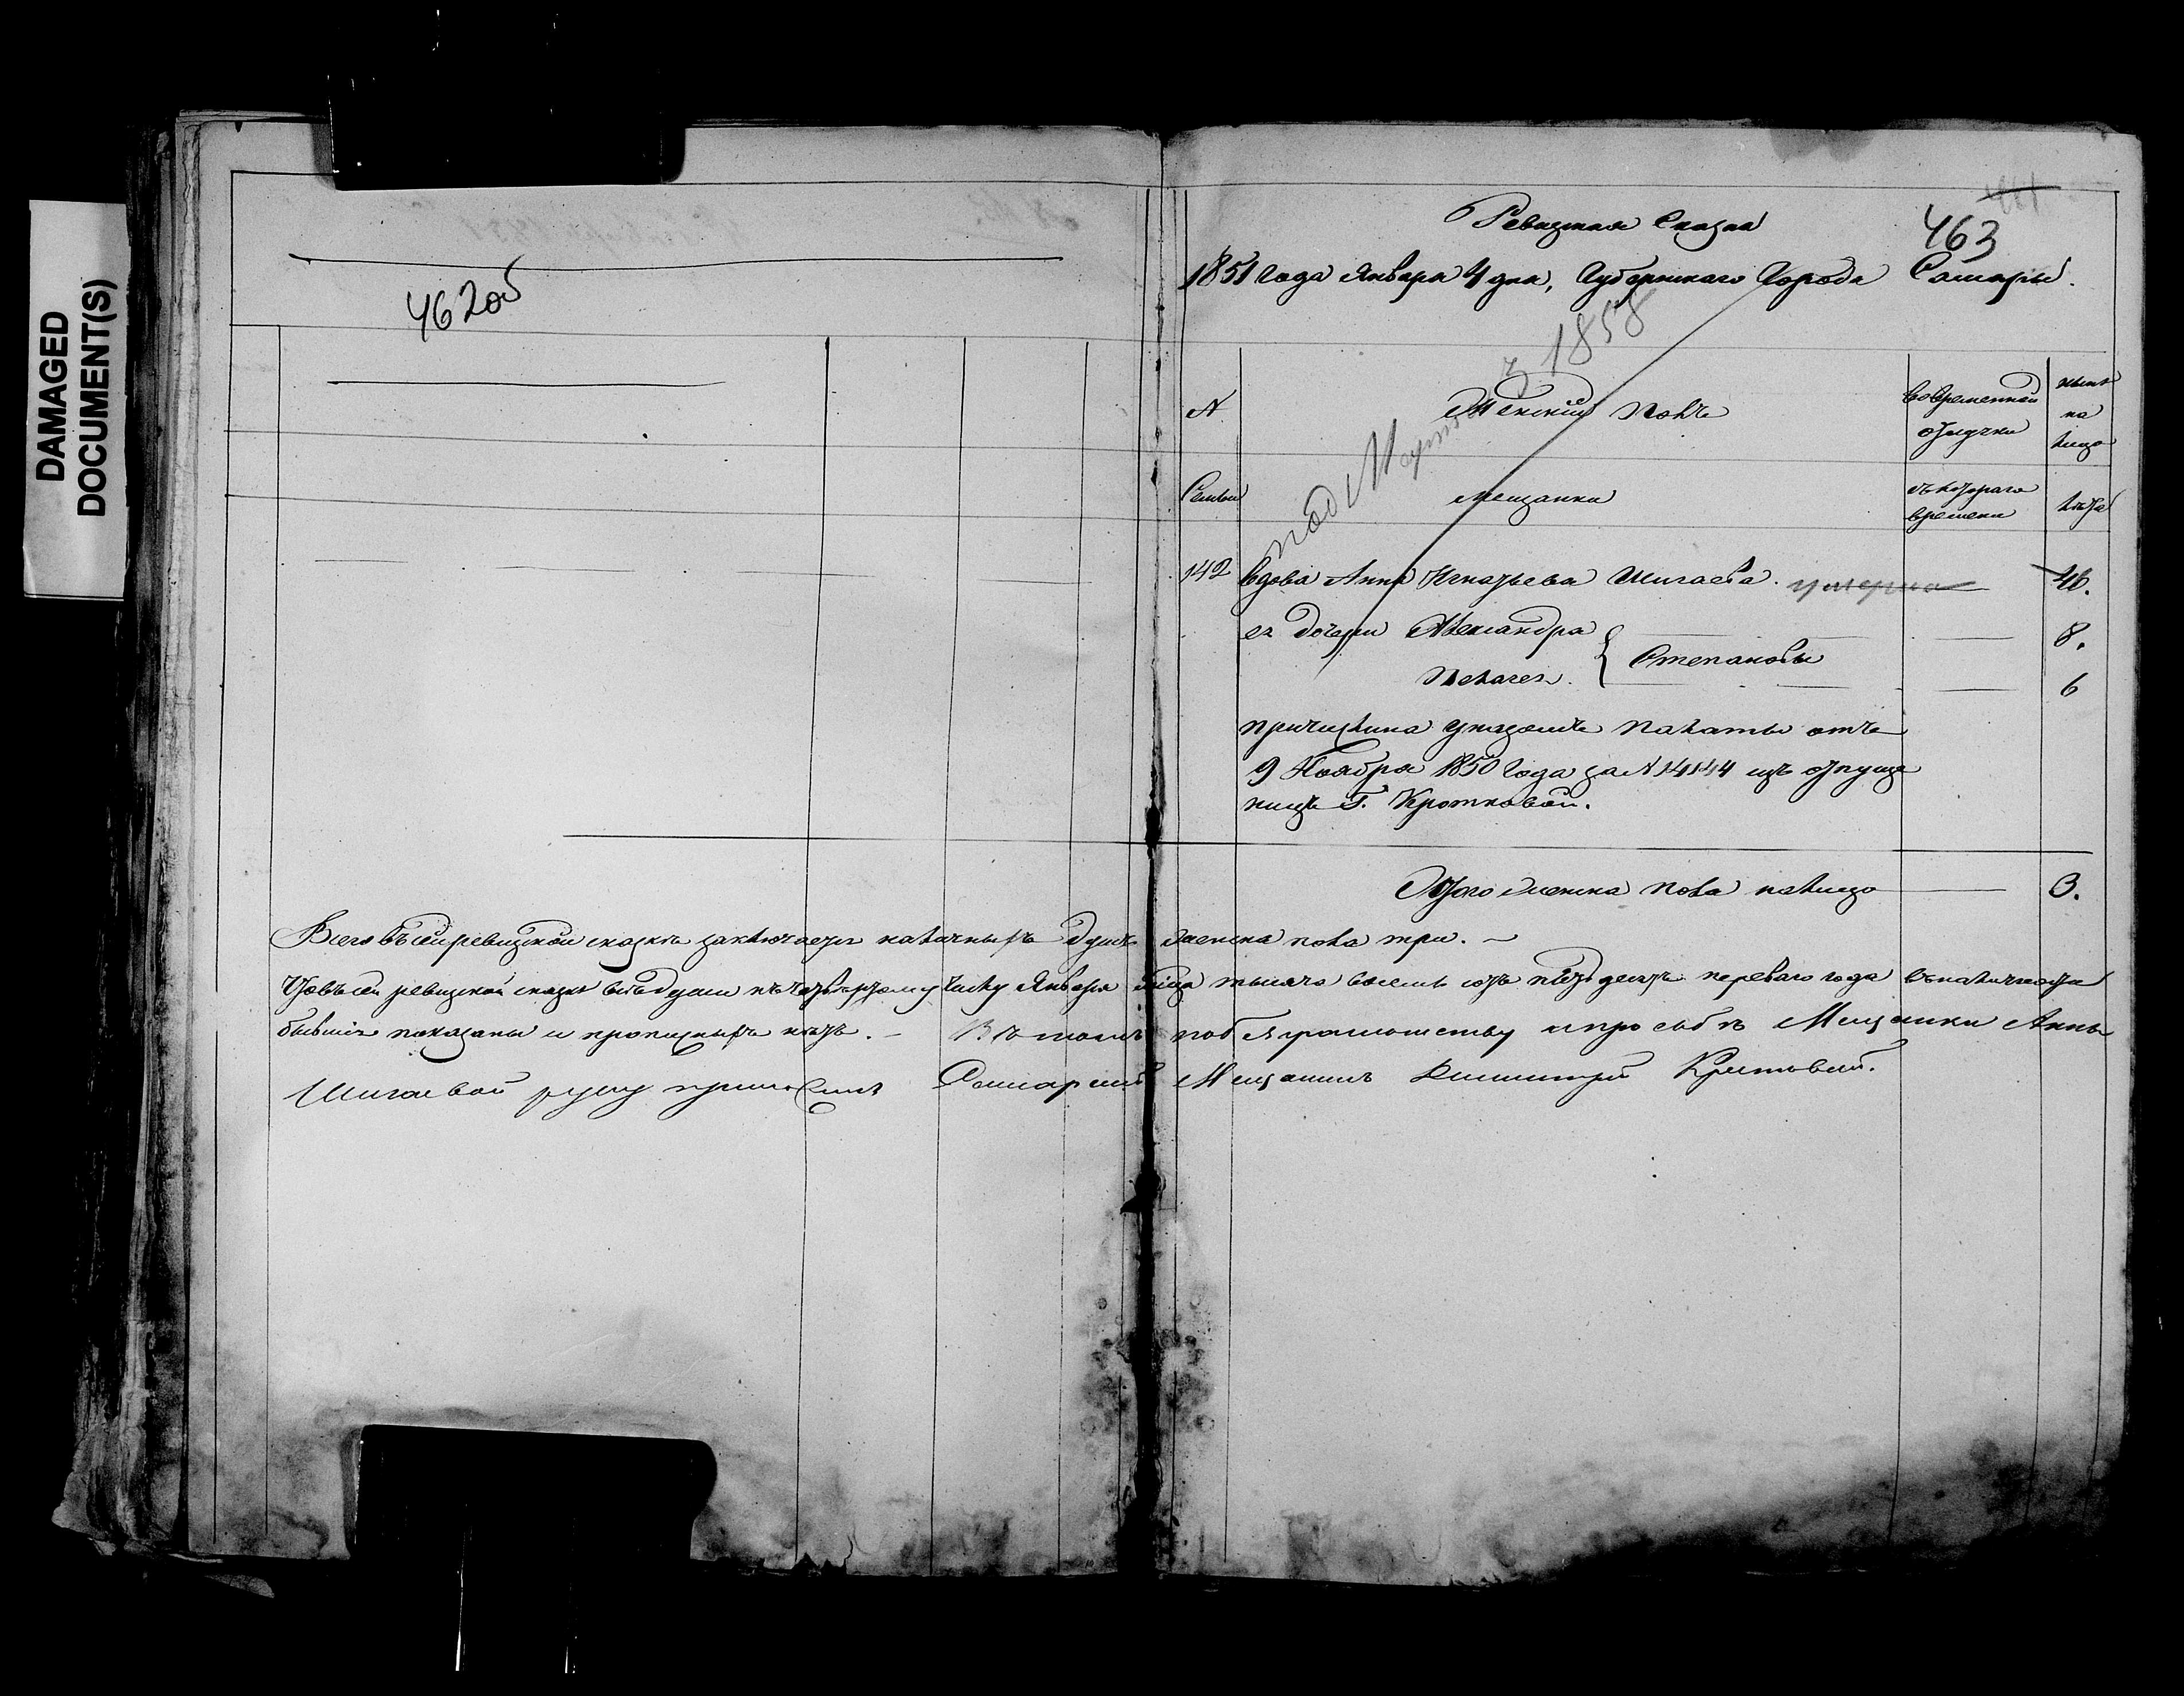 DAMAGED
DOCUMENT(S)
462об
463
Ревизская Сказка
1851 Года Января 4 дня, Губернскаго Города Самары.
1858
№
Женский полъ
Вовременной
отлучки
ныне
на
лицо
Семьи
мещанки
съ котораго
времени
лета
142
Вдова Анна Игнатьева Шигаева. умерла
46.
ея дочери Александра
8.
Степановы
Пелагея.
6
причислена указомъ Палаты отъ
9 Ноября 1850 Года за № 14144 изъ отпуще
ницъ Г. Кротковой.
Итого женска пола налицо
3.
Всего въ сей ревизской сказке заключается наличныхъ душъ женска пола три.
Что въ сей ревизской сказке все души къ четвертому числу Января тысяча восемь сотъ пятьдесятъ перваго года въ наличности
бывшие показаны и прописныхъ нетъ. – Въ томъ по безграмотству и просьбе Мещанки Анны
Шигаевой руку приложилъ Самарский Мещанинъ Димитрий